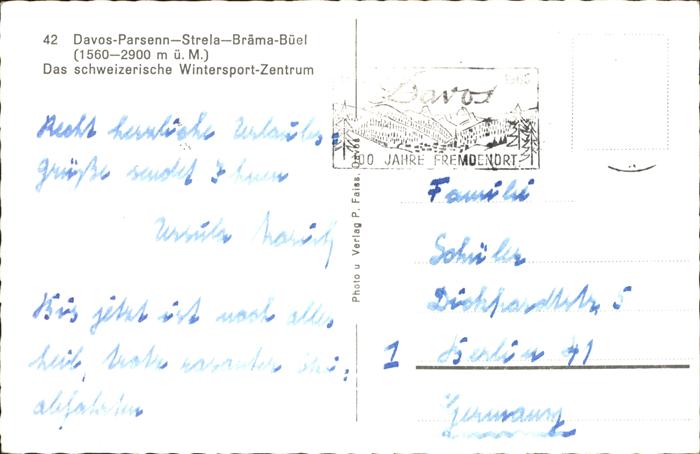 42 Davos-Parsenn—Strela—Bräma-Büel
(1560—2900 m ü. M.)
Das schweizerische Wintersport-Zentrum
Recht herzliche Urlaubs-
grüße sendet Ihnen
Ursula
Bis jetzt ist noch alles
heil, trotz rasanter Ski-
abfahrten
Davos
100 JAHRE FREMDENORT
Photo u Verlag P. Faiss, Davos
Familie
Schüler
Dickhardtstr. 5
1 Berlin 41
Germany